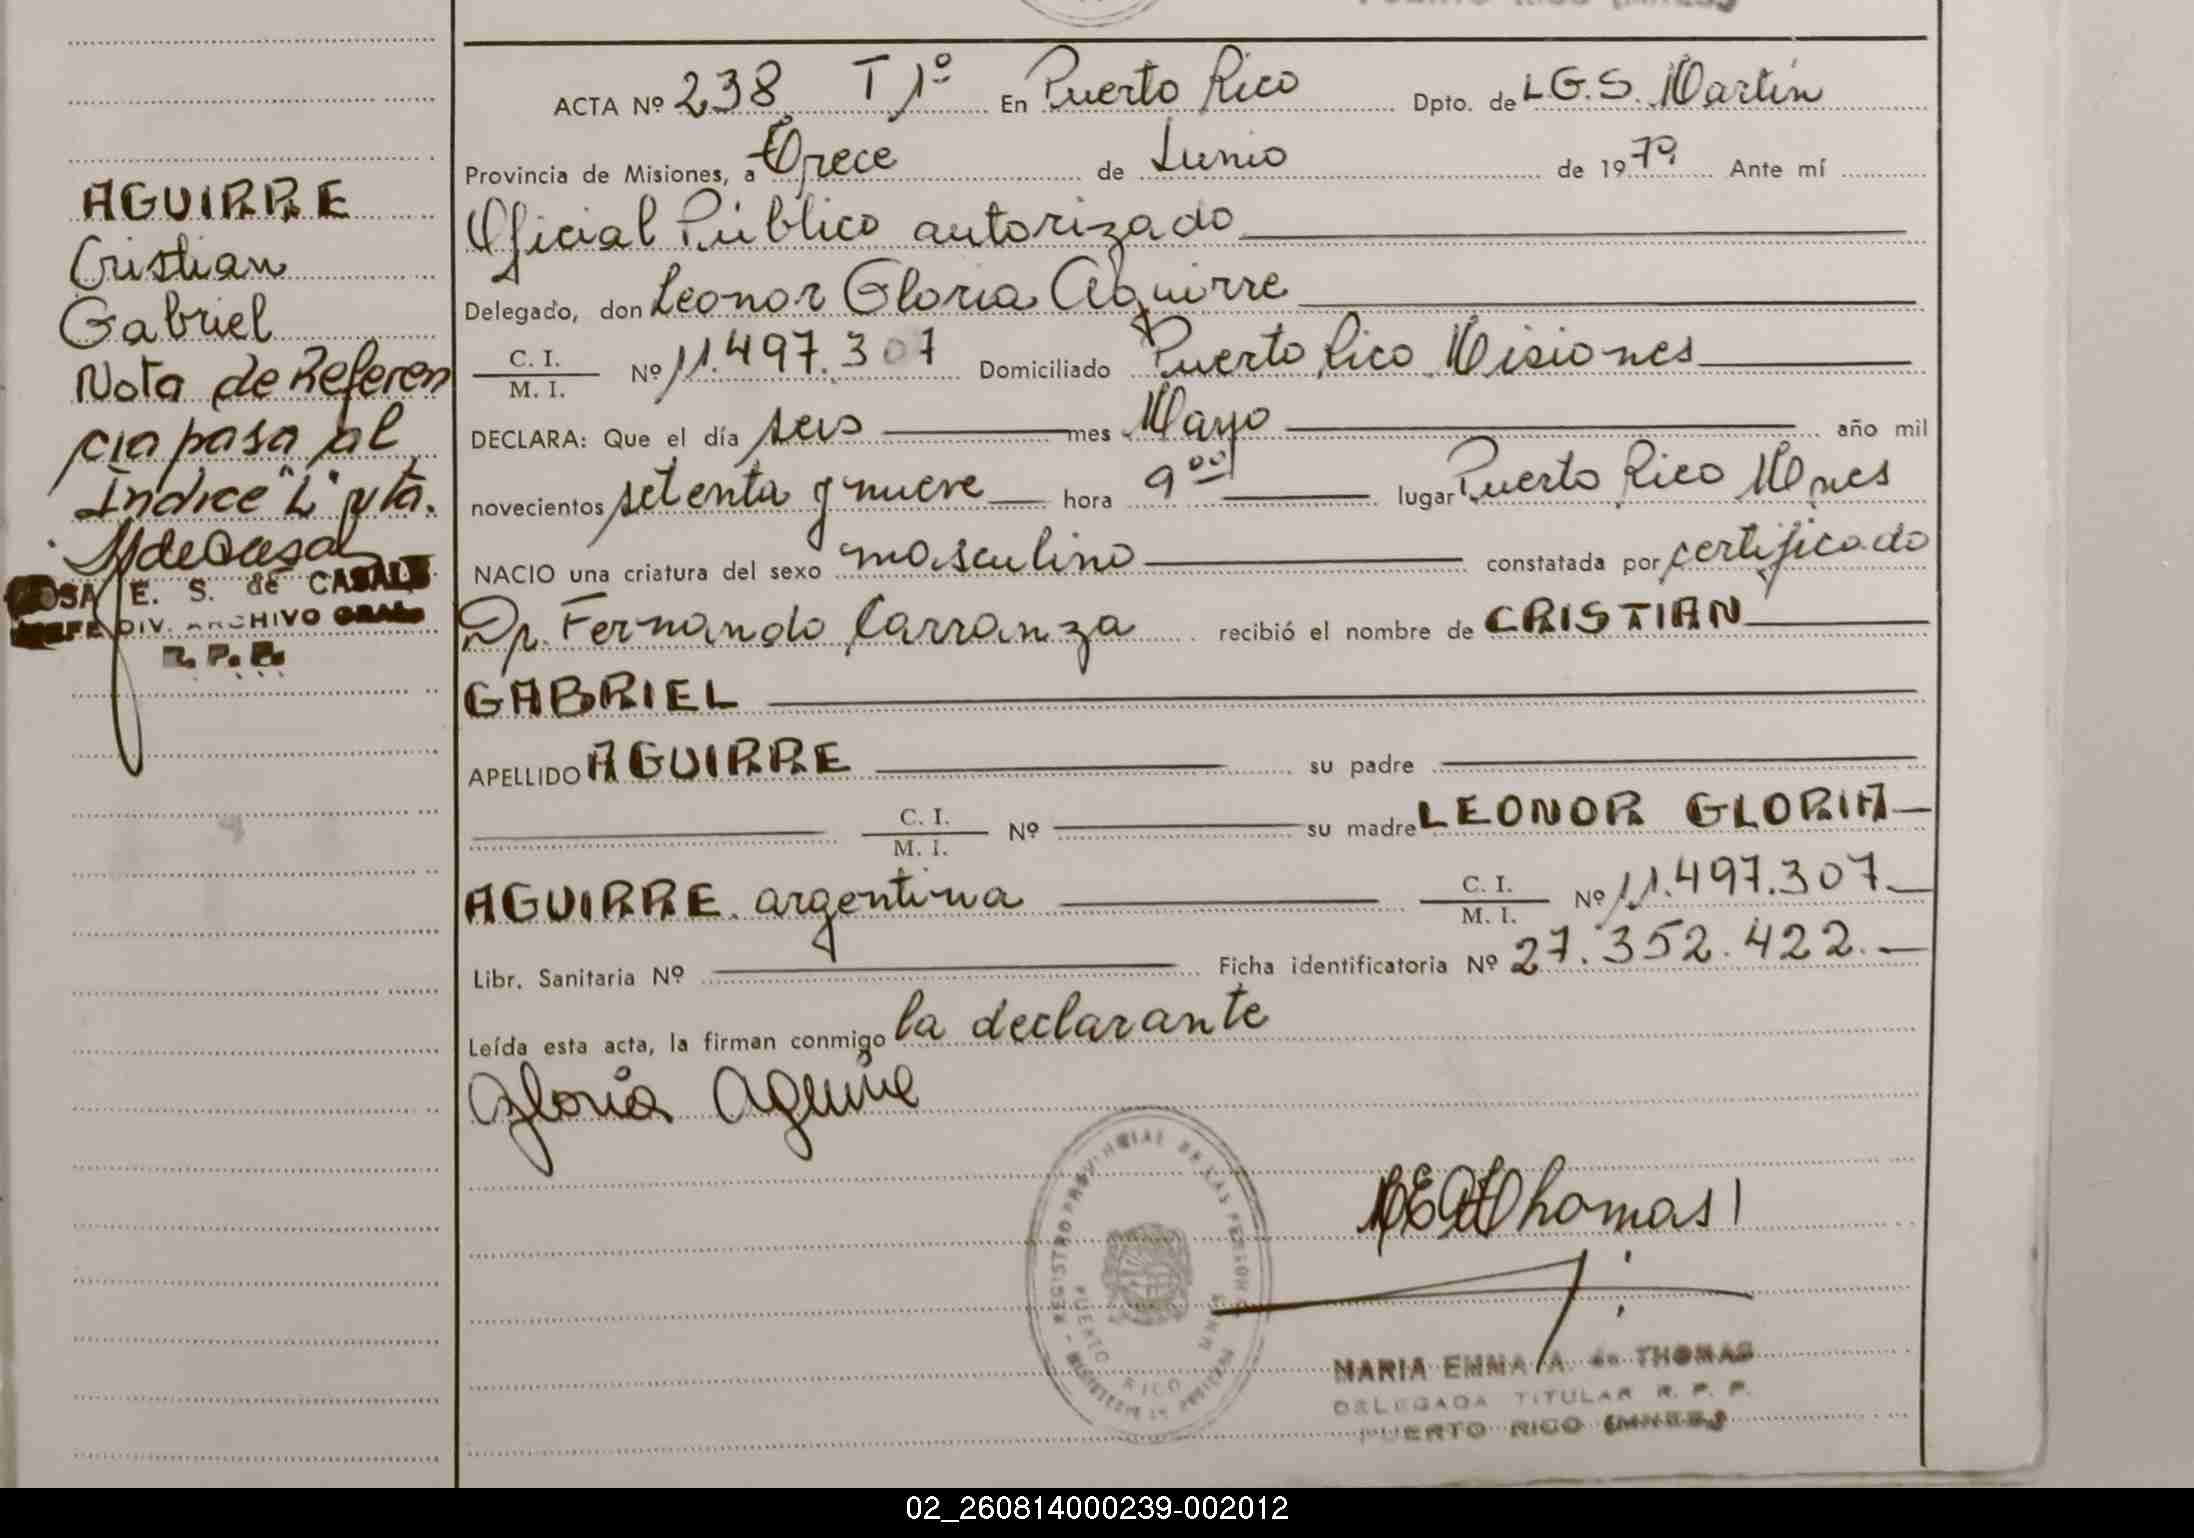 AGUIRRE
Cristian
Gabriel
Nota de Referen
cia pasa al
Indice "L" yta.
E. S. de CASALS
JEFE DIV. ARCHIVO GRAL.
R. P. P.
ACTA Nº 238 T 1º En Puerto Rico Dpto. de L G. S. Martín
Provincia de Misiones, a Trece de Junio de 1979 Ante mí
Oficial Público autorizado
Delegado, don Leonor Gloria Aguirre
C. I.
M. I. Nº 11.497.307 Domiciliado Puerto Rico Misiones
DECLARA: Que el día seis mes Mayo año mil
novecientos setenta y nueve hora 9 00 lugar Puerto Rico Mnes
NACIO una criatura del sexo masculino constatada por certificado
Dr. Fernando Carranza recibió el nombre de CRISTIAN
GABRIEL
APELLIDO AGUIRRE su padre
C. I.
M. I. Nº su madre LEONOR GLORIA
AGUIRRE. argentina C. I.
M. I. Nº 11.497.307
Libr. Sanitaria Nº Ficha identificatoria Nº 27.352.422.
Leída esta acta, la firman conmigo la declarante
Gloria Aguirre
REGISTRO PROVINCIAL DE LAS PERSONAS
PUERTO RICO
MARIA EMMA A. de THOMAS
DELEGADA TITULAR R. P. P.
PUERTO RICO (MNES)
02_260814000239-002012